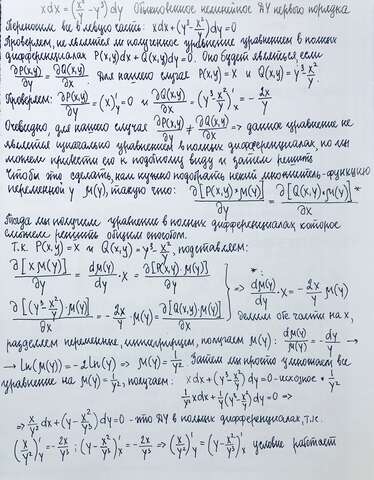 xdx = (x²/y - y³)dy Обыкновенное нелинейное ДУ первого порядка
Переносим все в левую часть: xdx + (y³ - x²/y)dy = 0
Проверяем, не является ли полученное уравнение уравнением в полных
дифференциалах P(x,y)dx + Q(x,y)dy = 0. Оно будет являться, если
∂P(x,y)/∂y = ∂Q(x,y)/∂x Для нашего случая P(x,y) = x и Q(x,y) = y³ - x²/y.
Проверяем: ∂P(x,y)/∂y = (x)'y = 0 и ∂Q(x,y)/∂x = (y³ - x²/y)'x = -2x/y
Очевидно, для нашего случая ∂P(x,y)/∂y ≠ ∂Q(x,y)/∂x => данное уравнение не
является изначально уравнением в полных дифференциалах, но мы
можем привести его к подобному виду и затем решить
Чтобы это сделать, нам нужно подобрать некий множитель-функцию
переменной y M(y), такую что: ∂[P(x,y)·M(y)]/∂y = ∂[Q(x,y)·M(y)]/∂x *
Тогда мы получим уравнение в полных дифференциалах которое
сможем решить общим способом.
Т.к. P(x,y) = x и Q(x,y) = y³ - x²/y, подставляем:
∂[x M(y)]/∂y = dM(y)/dy · x = ∂[P(x,y)·M(y)]/∂y
∂[(y³ - x²/y)·M(y)]/∂x = -2x/y · M(y) = ∂[Q(x,y)·M(y)]/∂x } => *: dM(y)/dy · x = -2x/y M(y)
Делим обе части на x,
разделяем переменные, интегрируем, получаем M(y): dM(y)/M(y) = -dy/y →
→ ln(M(y)) = -2ln(y) => M(y) = 1/y². Затем мы просто умножаем все
уравнение на M(y) = 1/y², получаем: xdx + (y³ - x²/y)dy = 0 - исходное · 1/y²
1/y² xdx + 1/y²(y³ - x²/y)dy = 0 =>
=> x/y² dx + (y - x²/y³)dy = 0 - это ДУ в полных дифференциалах, т.к.
(x/y²)'y = -2x/y³ ; (y - x²/y³)'x = -2x/y³ => (x/y²)'y = (y - x²/y³)'x условие работает